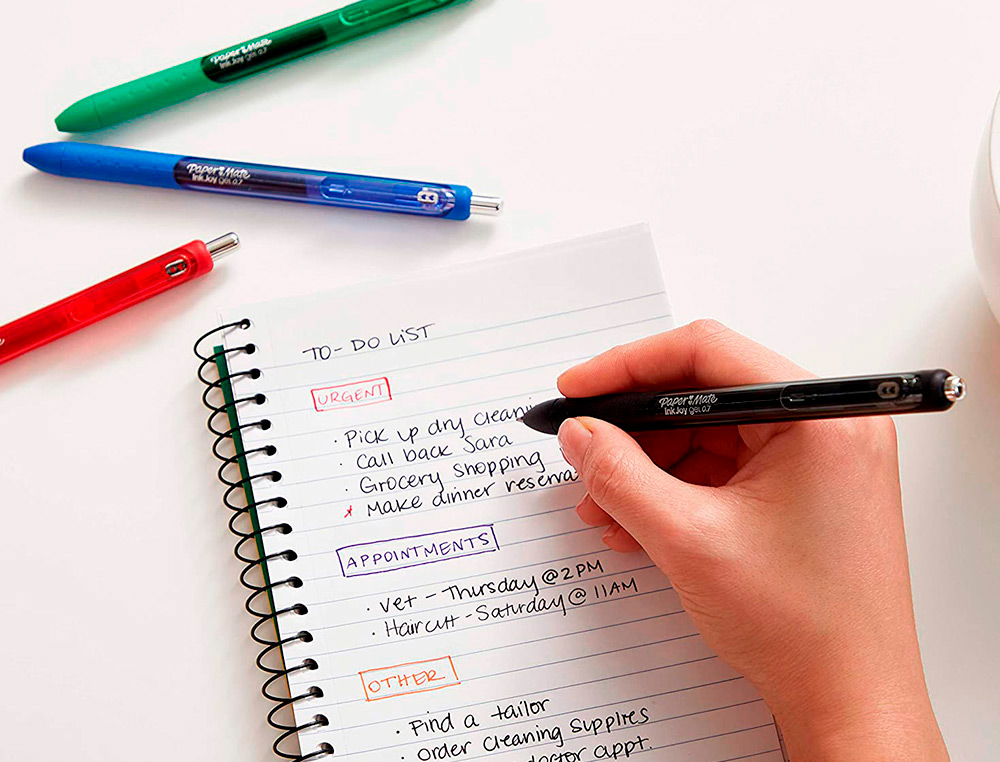 Paper Mate
InkJoy gel 0.7
Paper Mate
InkJoy gel 0.7
TO-DO LIST
URGENT
Paper Mate
InkJoy gel 0.7
· Pick up dry cleani
· Call back Sara
· Grocery Shopping
* Make dinner reserva
APPOINTMENTS
· Vet - Thursday @ 2 PM
· Haircut - Saturday @ 11 AM
OTHER
· Find a tailor
· Order cleaning supplies
appt.